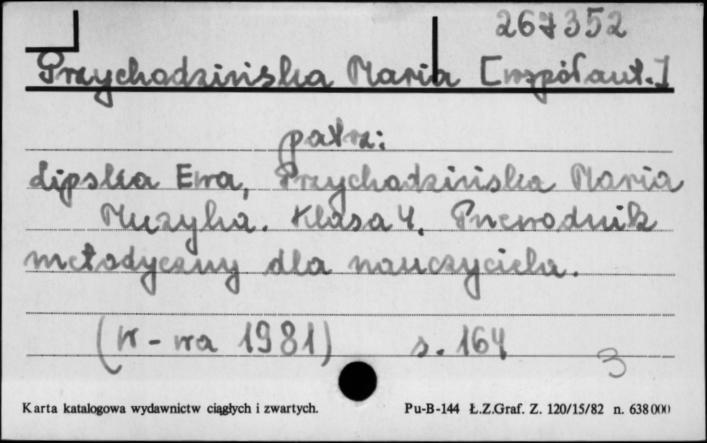 267352
Przychodzińska Maria [współaut.]
patrz:
Lipska Ewa, Przychodzińska Maria
Muzyka. Klasa 4. Przewodnik
metodyczny dla nauczyciela.
(W-wa 1981) s. 164
3
Karta katalogowa wydawnictw ciągłych i zwartych. Pu-B-144 Ł.Z.Graf. Z. 120/15/82 n. 638000